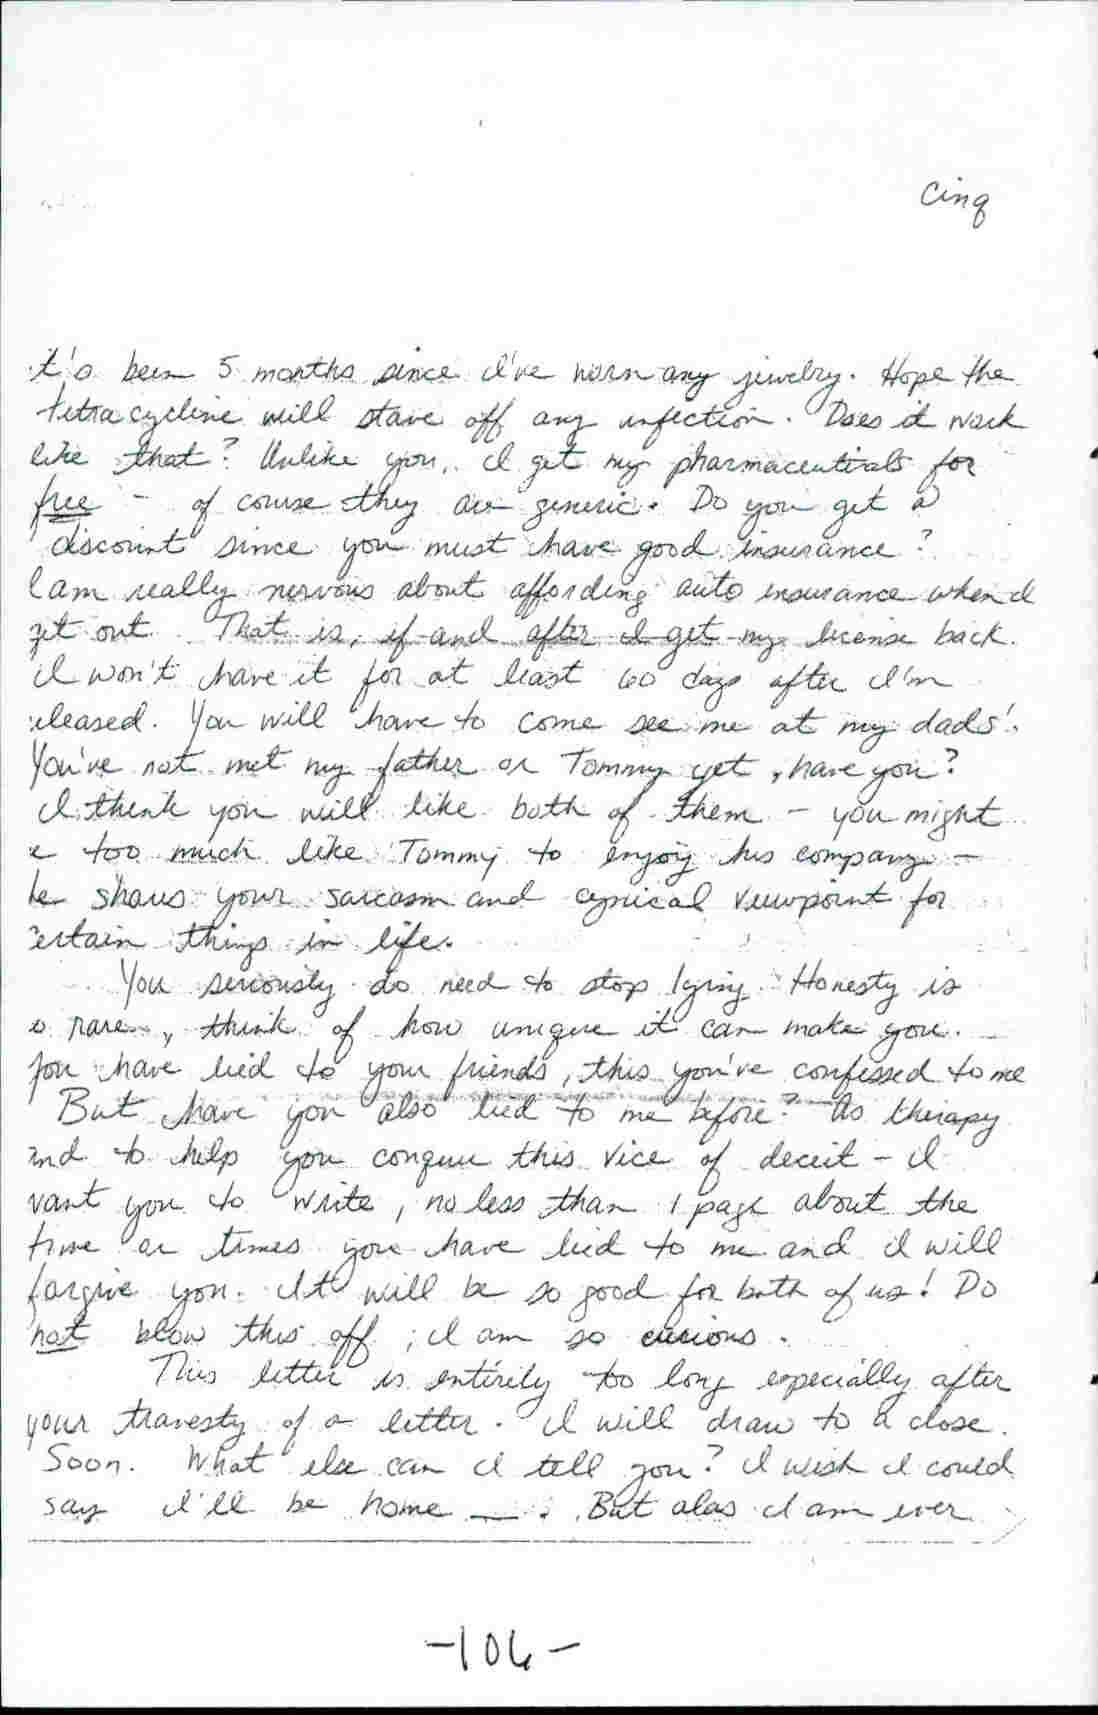 Cinq
t's been 5 months since I've worn any jewelry. Hope the
tetracycline will stave off any infection. Does it work
like that? Unlike you, I get my pharmaceuticals for
free - of course they are generic. Do you get a
discount since you must have good insurance?
I am really nervous about affording auto insurance when I
get out. That is, if and after I get my license back.
I won't have it for at least 60 days after I'm
eleased. You will have to come see me at my dads'.
You've not met my father or Tommy yet, have you?
I think you will like both of them - you might
e too much like Tommy to enjoy his company -
he shares your sarcasm and cynical viewpoint for
ertain things in life.
You seriously do need to stop lying. Honesty is
o rare, think of how unique it can make you.
You have lied to your friends, this you've confessed to me
But have you also lied to me before? As therapy
and to help you conquer this vice of deceit - I
want you to write, no less than 1 page about the
time or times you have lied to me and I will
forgive you. It will be so good for both of us! Do
not blow this off; I am so curious.
This letter is entirely too long especially after
your travesty of a letter. I will draw to a close.
Soon. What else can I tell you? I wish I could
say I'll be home __. But alas I am ever
-106-